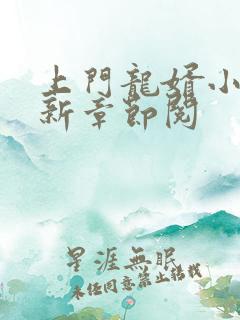 上門龍婿小
新章節閱
星涯無眠
未經同意禁止轉載